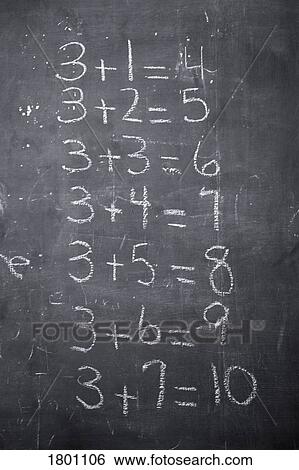 3+1=4
3+2=5
3+3=6
3+4=7
3+5=8
3+6=9
3+7=10
FOTOSEARCH
1801106 www.fotosearch.com